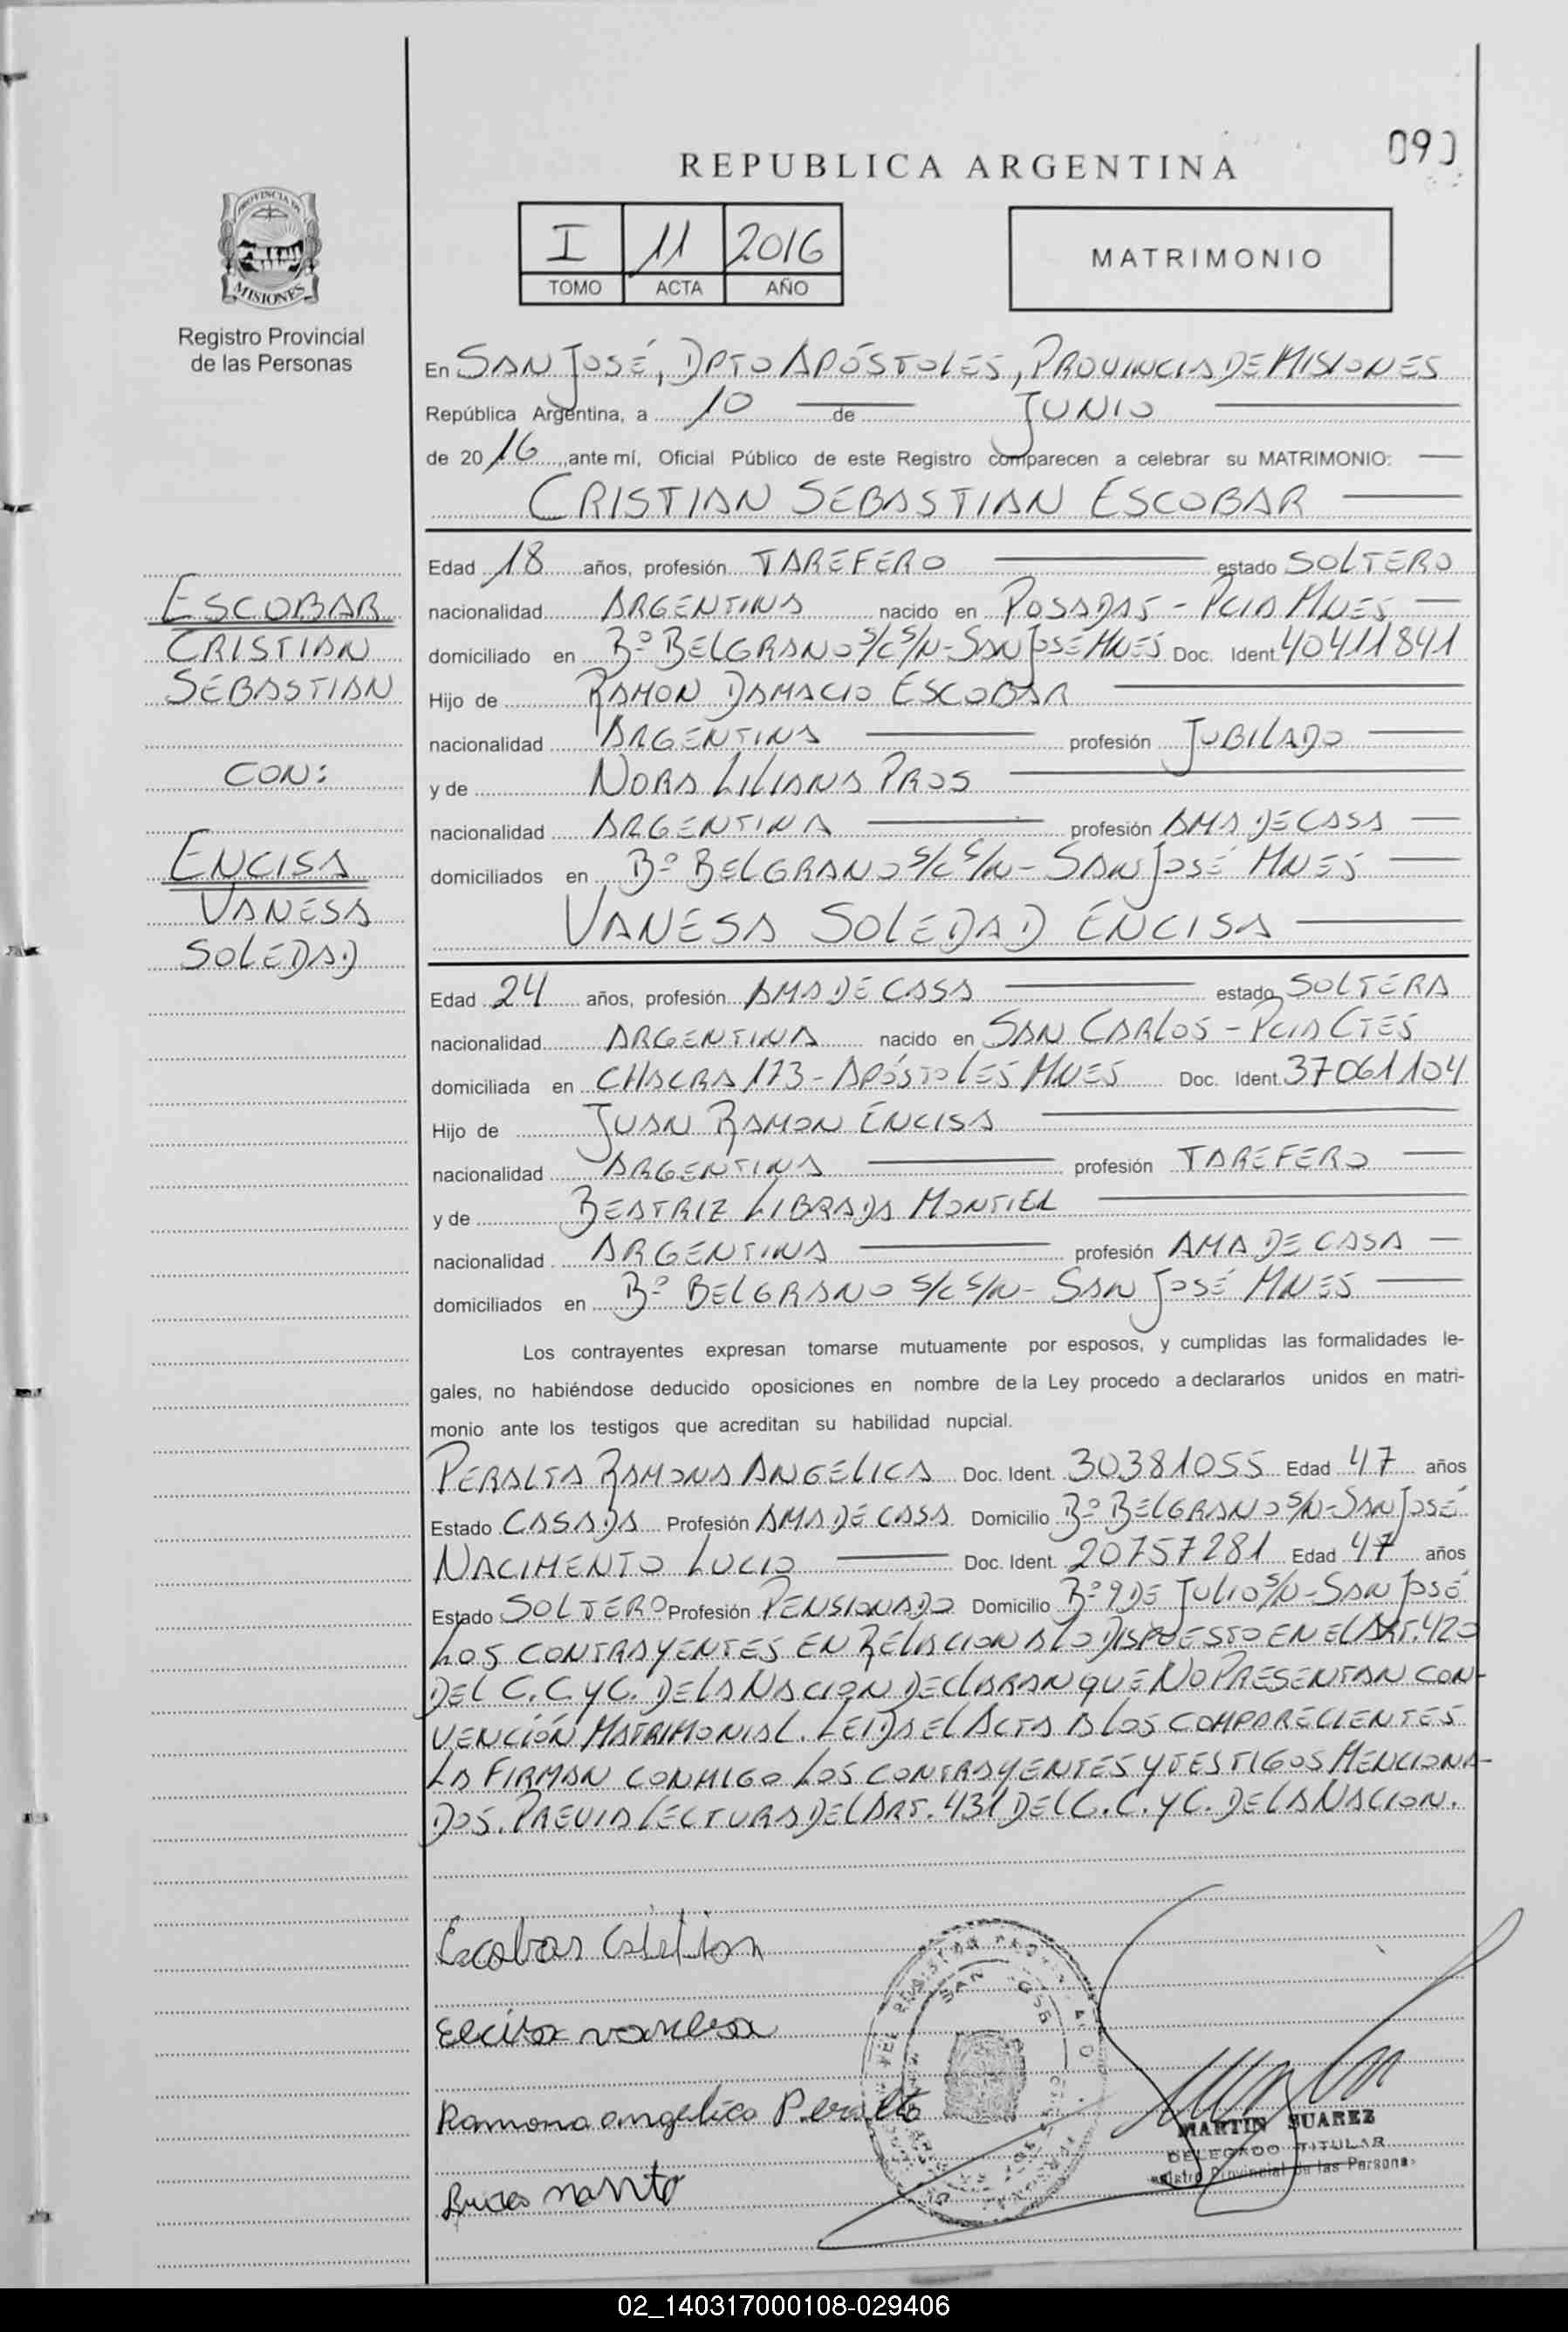 090
REPUBLICA ARGENTINA
PROVINCIA DE
MISIONES
Registro Provincial
de las Personas
I 11 2016
TOMO ACTA AÑO
MATRIMONIO
En SAN JOSÉ, DPTO APÓSTOLES, PROVINCIA DE MISIONES
República Argentina, a 10 de JUNIO
de 20 16 ,,ante mí, Oficial Público de este Registro comparecen a celebrar su MATRIMONIO:
CRISTIAN SEBASTIAN ESCOBAR
Edad 18 años, profesión TAREFERO estado SOLTERO
nacionalidad ARGENTINA nacido en POSADAS - PCIA MNES
domiciliado en Bº BELGRANO S/C S/N - SAN JOSÉ MNES Doc. Ident. 40411841
Hijo de RAMON DAMACIO ESCOBAR
nacionalidad ARGENTINA profesión JUBILADO
y de NORA LILIANA PROS
nacionalidad ARGENTINA profesión AMA DE CASA
domiciliados en Bº BELGRANO S/C S/N - SAN JOSÉ MNES
ESCOBAR
CRISTIAN
SEBASTIAN
CON:
ENCISA
VANESA
SOLEDAD
VANESA SOLEDAD ENCISA
Edad 24 años, profesión AMA DE CASA estado SOLTERA
nacionalidad ARGENTINA nacido en SAN CARLOS - PCIA CTES
domiciliada en CHACRA 173 - APÓSTOLES MNES Doc. Ident. 37061104
Hijo de JUAN RAMON ENCISA
nacionalidad ARGENTINA profesión TAREFERO
y de BEATRIZ LIBRADA MONTIEL
nacionalidad ARGENTINA profesión AMA DE CASA
domiciliados en Bº BELGRANO S/C S/N - SAN JOSÉ MNES
Los contrayentes expresan tomarse mutuamente por esposos, y cumplidas las formalidades le-
gales, no habiéndose deducido oposiciones en nombre de la Ley procedo a declararlos unidos en matri-
monio ante los testigos que acreditan su habilidad nupcial.
PERALTA RAMONA ANGELICA Doc. Ident. 30381055 Edad 47 años
Estado CASADA Profesión AMA DE CASA Domicilio Bº BELGRANO S/N - SAN JOSÉ
NACIMENTO LUCIO Doc. Ident. 20757281 Edad 47 años
Estado SOLTERO Profesión PENSIONADO Domicilio Bº 9 DE JULIO S/N - SAN JOSÉ
LOS CONTRAYENTES EN RELACION A LO DISPUESTO EN EL ART. 420
DEL C.C. Y C. DE LA NACION DECLARAN QUE NO PRESENTAN CON-
VENCIÓN MATRIMONIAL. LEIDA EL ACTA A LOS COMPARECIENTES
LA FIRMAN CONMIGO LOS CONTRAYENTES Y TESTIGOS MENCIONA-
DOS. PREVIA LECTURA DEL ART. 431 DEL C.C. Y C. DE LA NACION.
Escobar Cristian
Encisa vanesa
Ramona angelica Peralta
MARTIN SUAREZ
DELEGADO TITULAR
Registro Provincial de las Personas
02_140317000108-029406